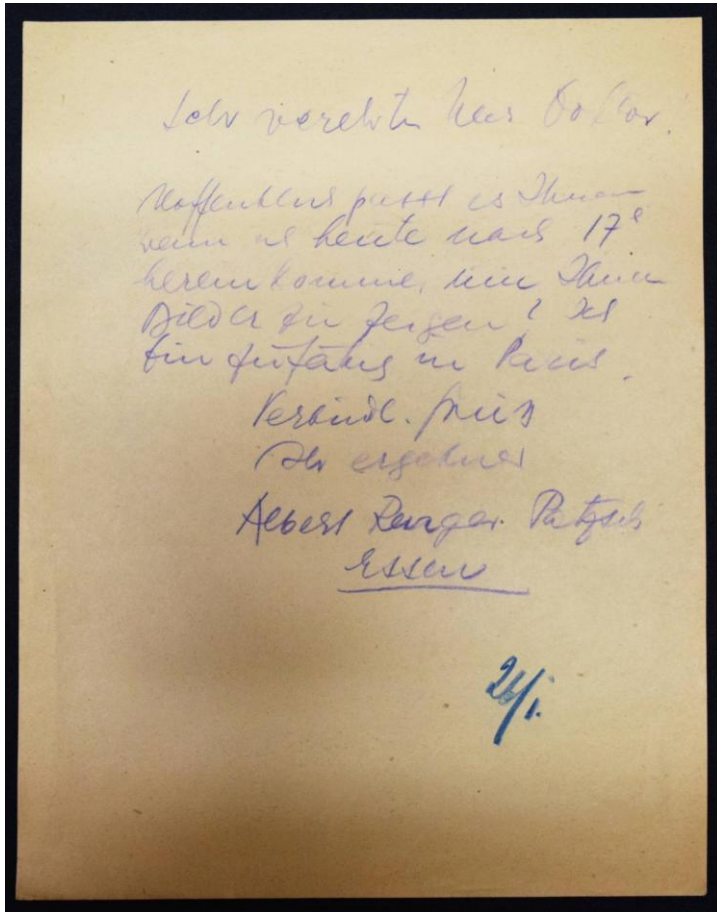 Sehr verehrter Herr Doktor!
Hoffentlich passt es Ihnen
wenn ich heute nach 17°
hereinkomme, um Ihnen
Bilder zu zeigen? Ich
bin zufällig in Paris.
Verbindl. Gruß
Ihr ergebener
Albert Renger-Patzsch
Essen
26/I.